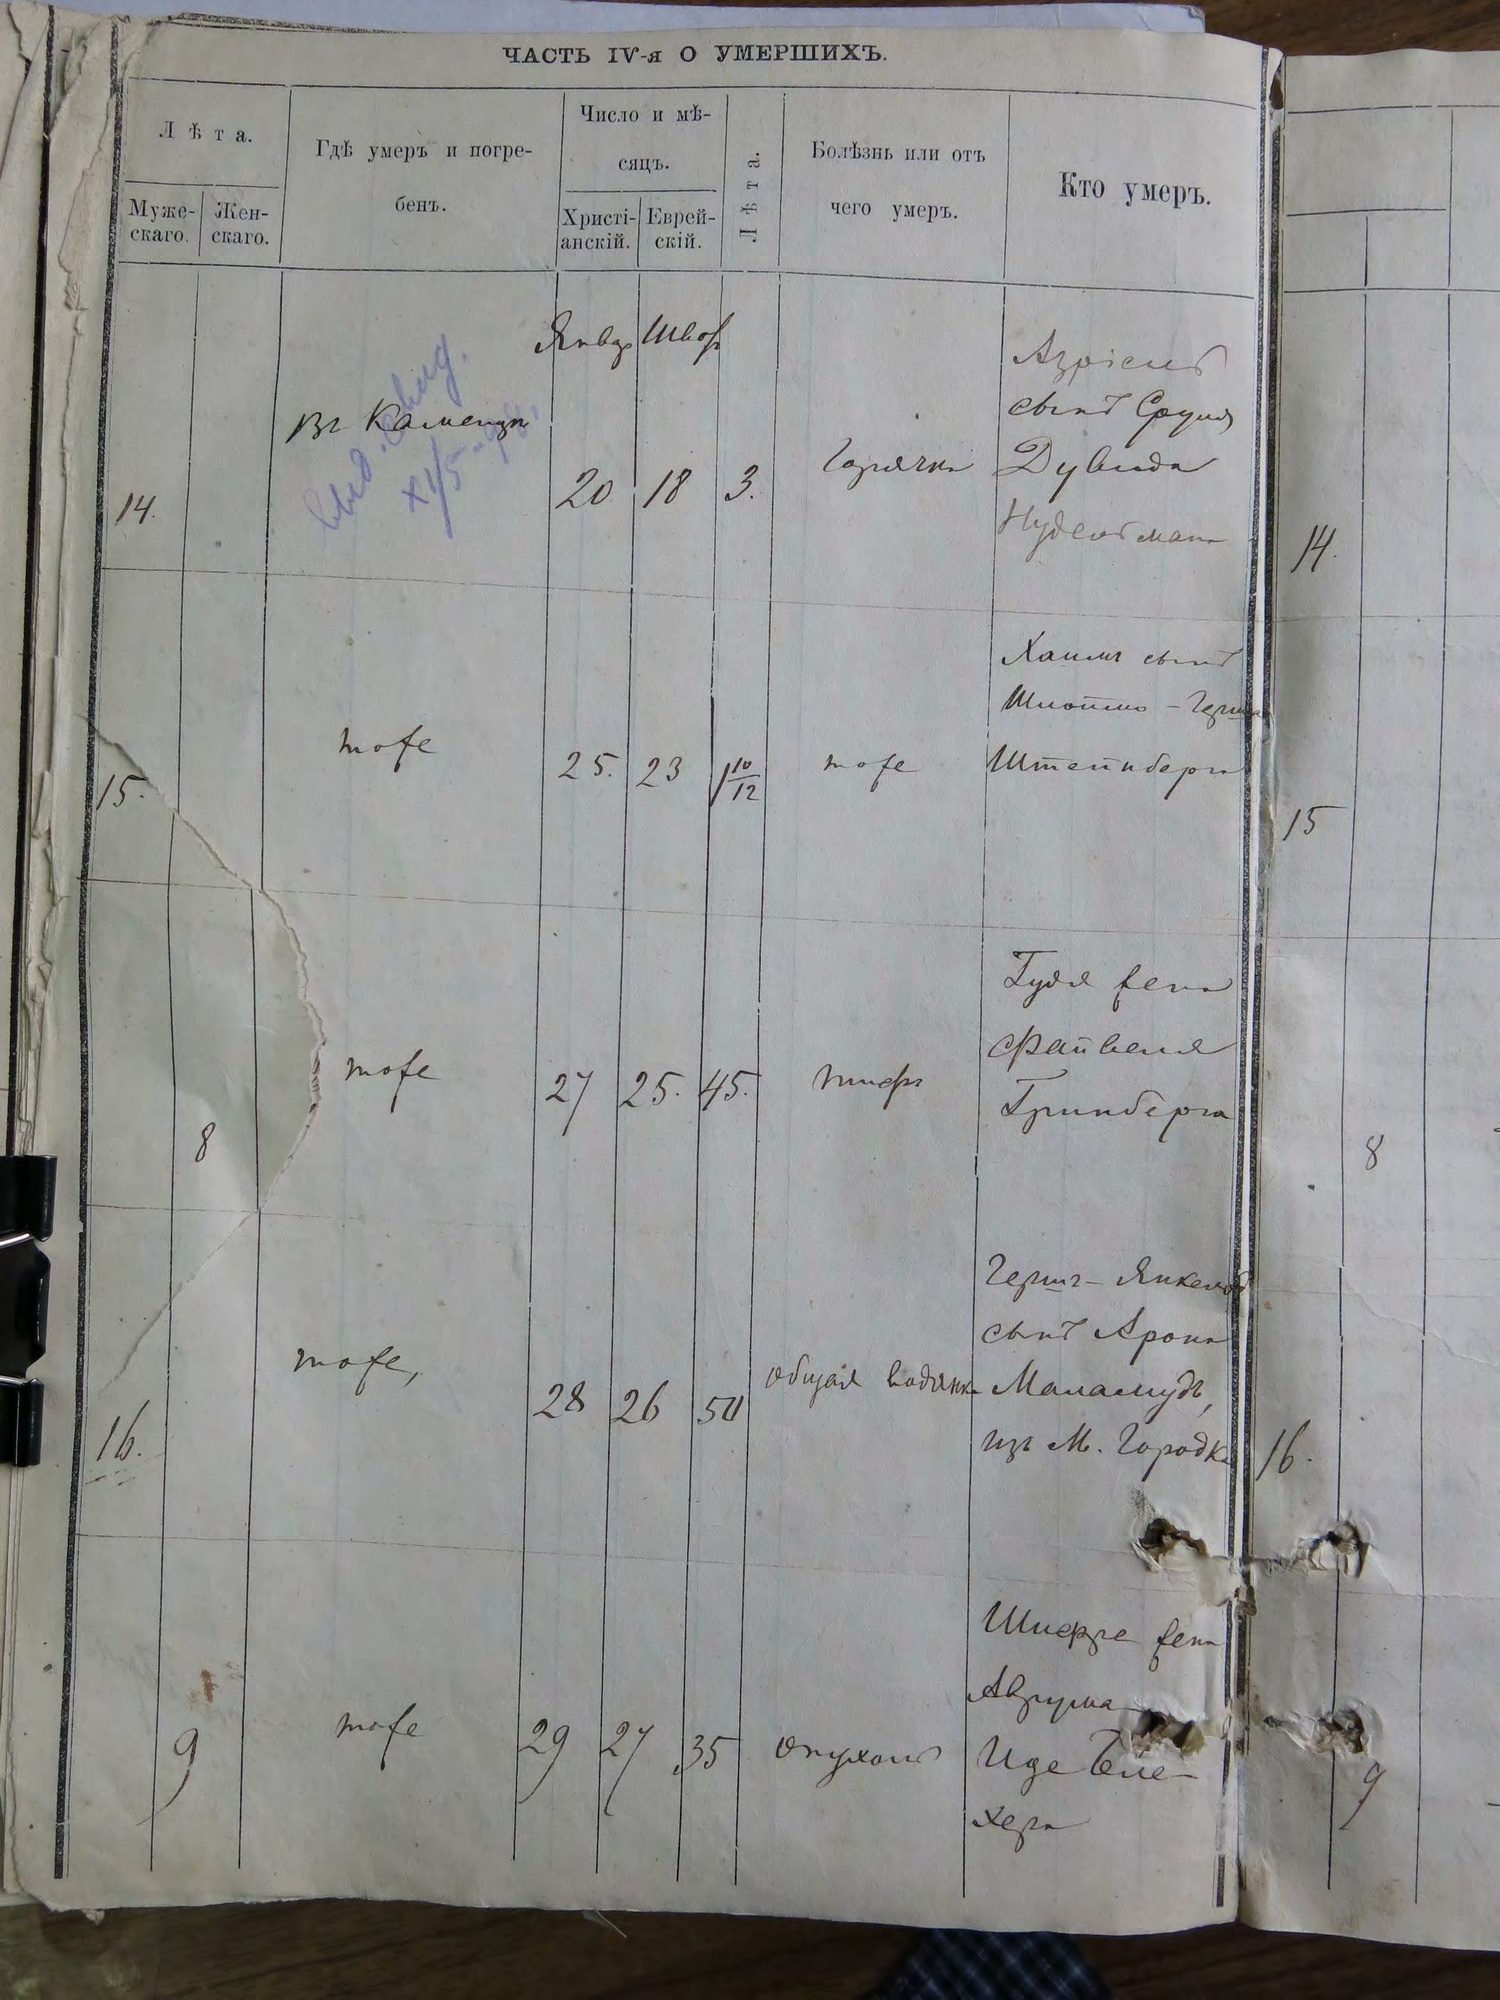 ЧАСТЬ IV-я О УМЕРШИХЪ.
Лѣта.
Муже-
скаго.
Жен-
скаго.
Гдѣ умеръ и погре-
бенъ.
Число и мѣ-
сяцъ.
Христі-
анскій.
Еврей-
скій.
Лѣта.
Болѣзнь или отъ
чего умеръ.
Кто умеръ.
14.
Въ Каменцѣ
выд.
Январ
20
Шват
18
3.
Горячка
Азріель
сынъ Сруля
Дувида
Нудельмана
14.
15.
тоже
25.
23
1 10/12
тоже
Хаимъ сынъ
Шлоймо - Герша
Штейнберга
15
8
тоже
27
25.
45.
тифъ
Гудя жена
Файвеля
Гринберга
8
16.
тоже,
28
26
50
общая водянка
Гершъ - Янкель
сынъ Арона
Маламудъ,
изъ М. Городка
16.
9
тоже
29
27
35
опухоль
жена
Аврума
Иде Бле-
хера
9